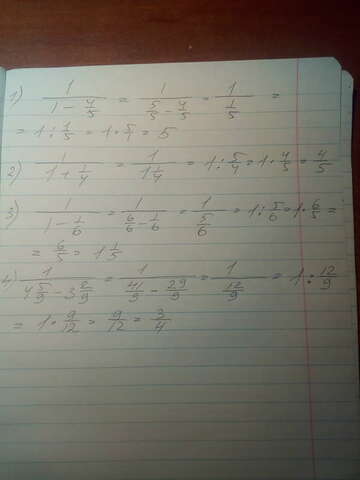 1) 1/(1 - 4/5) = 1/(5/5 - 4/5) = 1/(1/5) =
= 1 : 1/5 = 1 · 5/1 = 5
2) 1/(1 + 1/4) = 1/(1 1/4) = 1 : 5/4 = 1 · 4/5 = 4/5
3) 1/(1 - 1/6) = 1/(6/6 - 1/6) = 1/(5/6) = 1 : 5/6 = 1 · 6/5 =
= 6/5 = 1 1/5
4) 1/(4 5/9 - 3 2/9) = 1/(41/9 - 29/9) = 1/(12/9) = 1 : 12/9
= 1 · 9/12 = 9/12 = 3/4